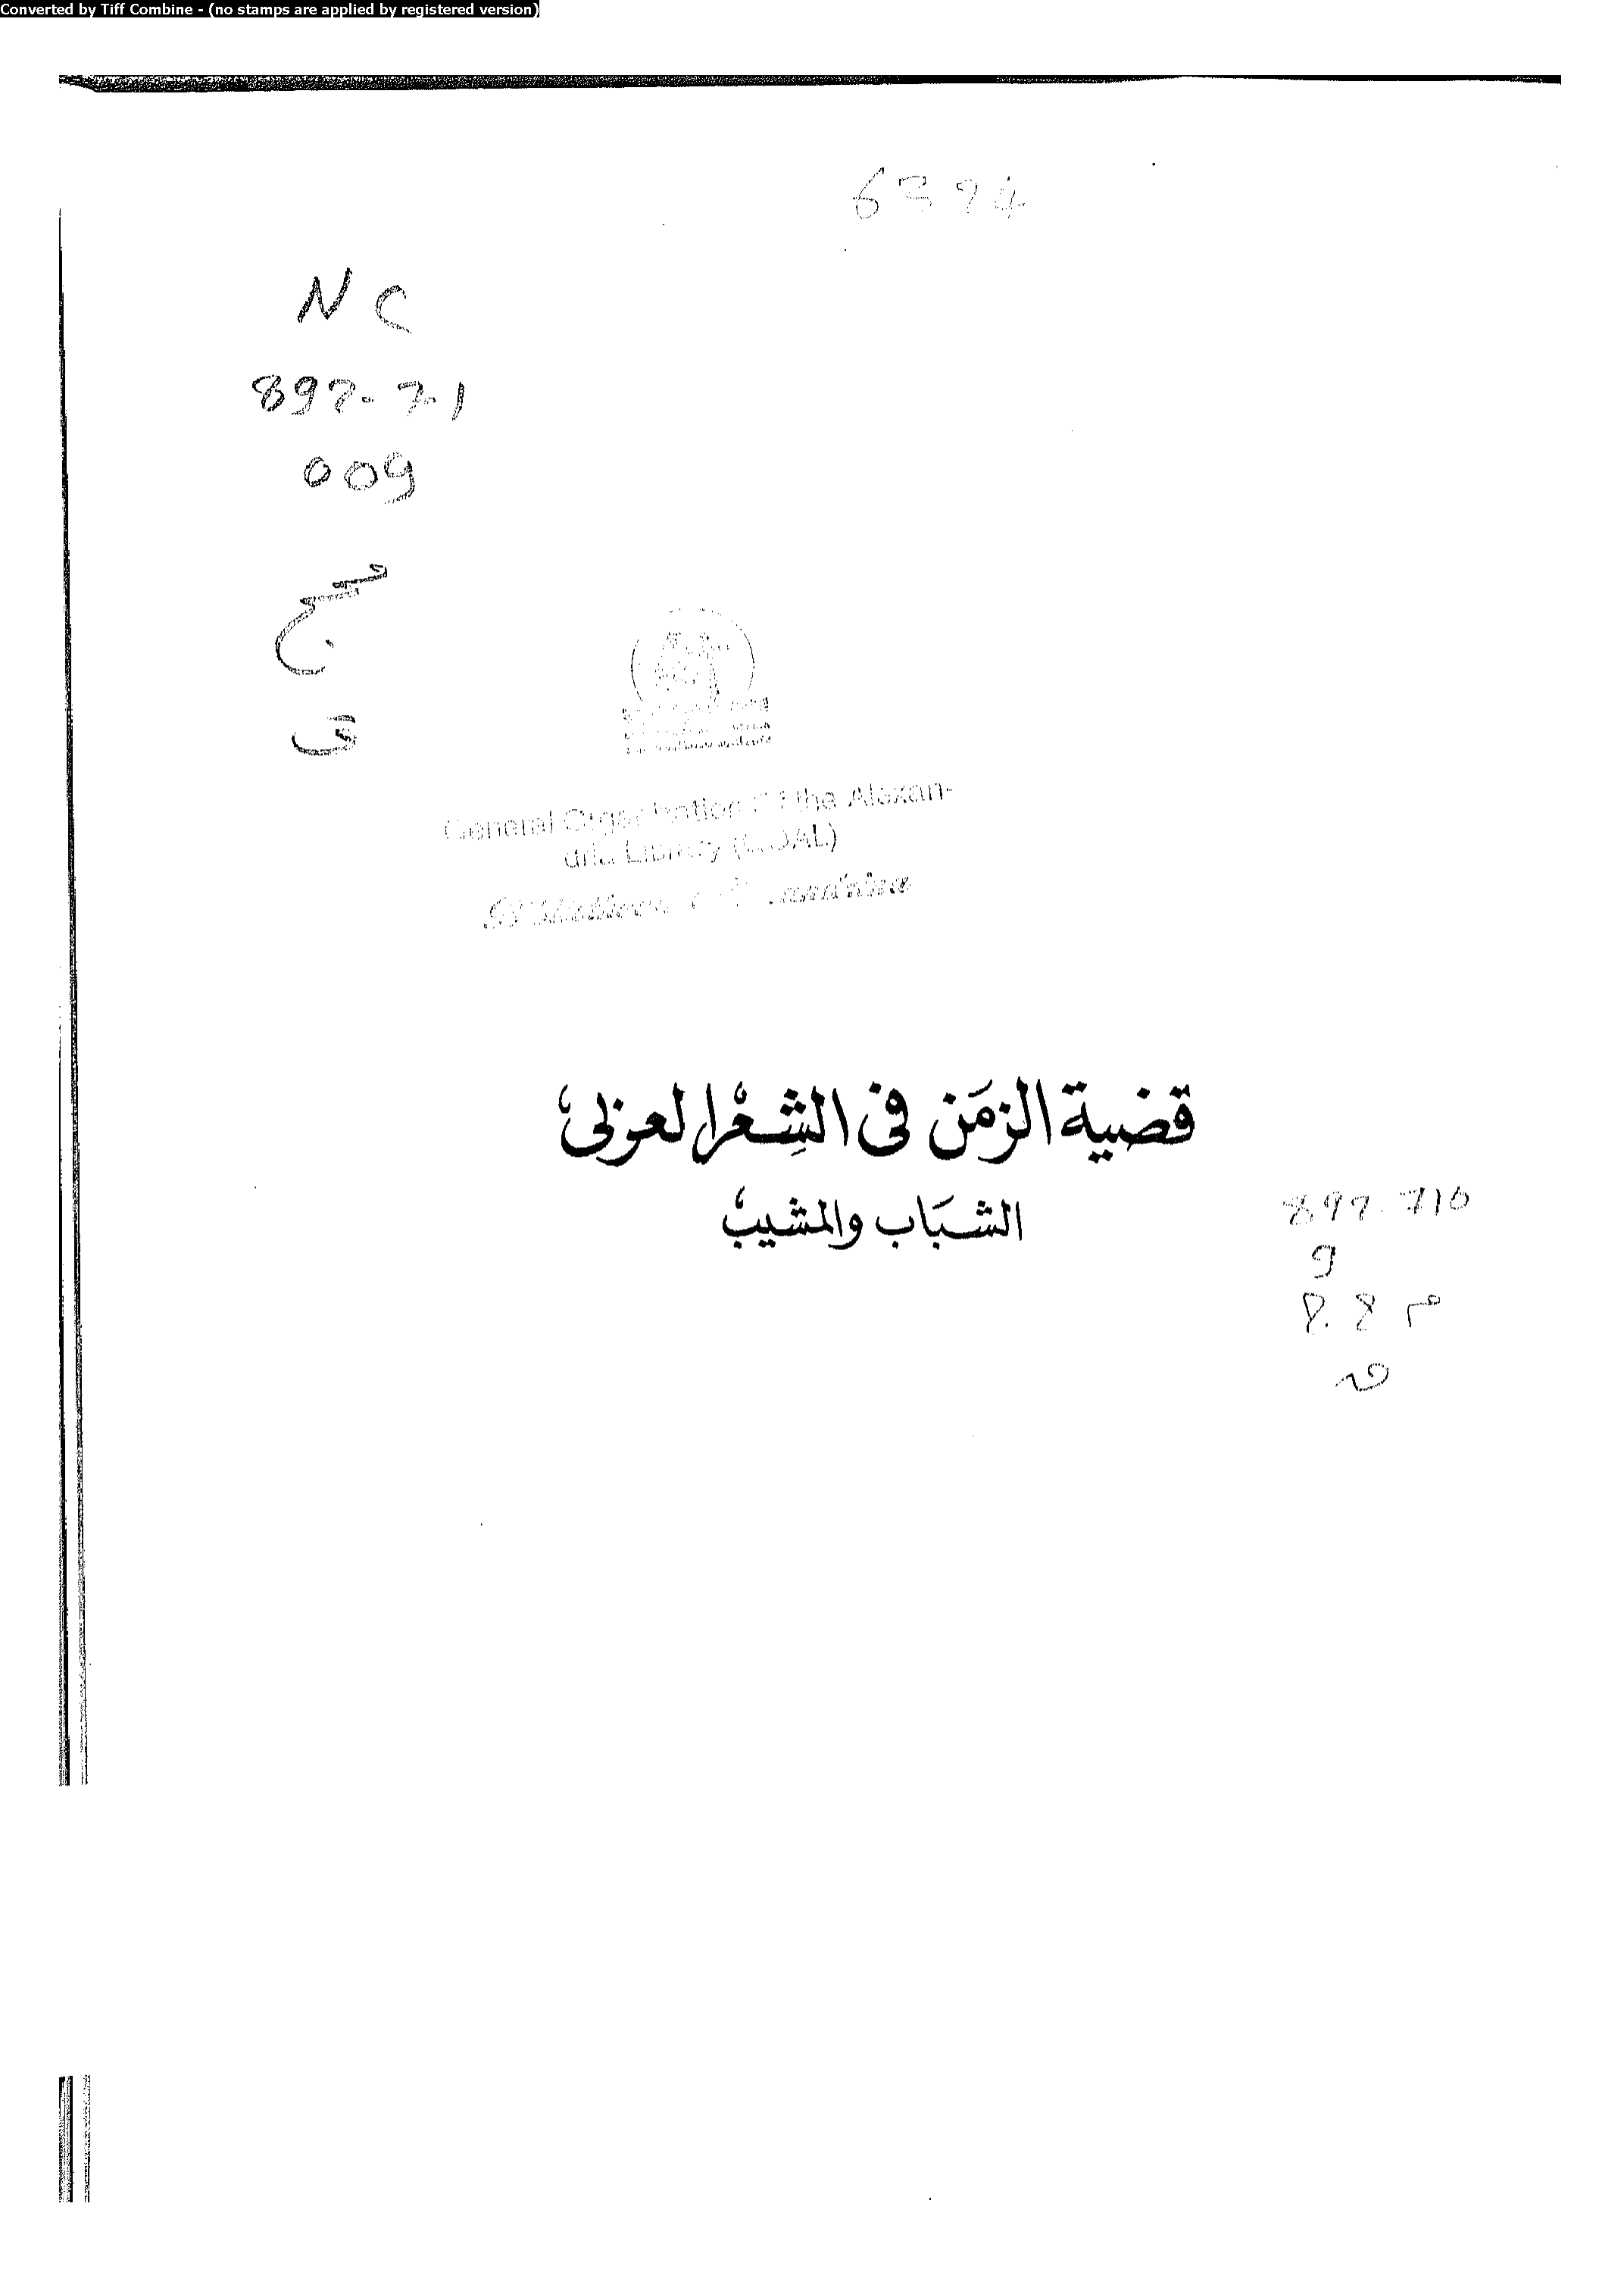 Converted by Tiff Combine - (no stamps are applied by registered version)
6394
NC
892.7.1
009
ق
General Organization Of the Alexan-
dria Library (GOAL)
قضية الزمَن فى الشِعْر العربى
الشبَاب والمشيب
892.710
9
م